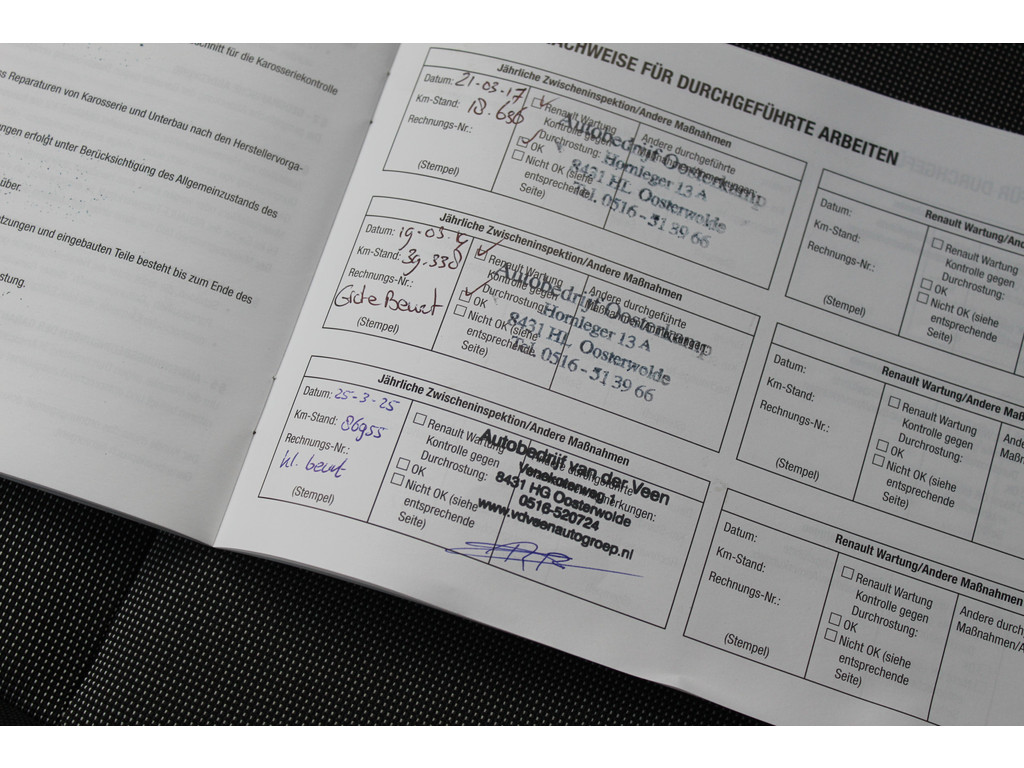 chnitt für die Karosseriekontrolle
s Reparaturen von Karosserie und Unterbau nach den Herstellervorga-
ngen erfolgt unter Berücksichtigung des Allgemeinzustands des
über.
tzungen und eingebauten Teile besteht bis zum Ende des
stung.
ACHWEISE FÜR DURCHGEFÜHRTE ARBEITEN
Jährliche Zwischeninspektion/Andere Maßnahmen
Datum: 21-03-17
Km-Stand: 18.636
Rechnungs-Nr.:
(Stempel)
Renault Wartung
Kontrolle gegen
Durchrostung:
OK
Nicht OK (siehe
entsprechende
Seite)
Andere durchgeführte
Autobedrijf Oosterkamp
Hornleger 13 A
8431 HL Oosterwolde
Tel. 0516 - 51 39 66
Jährliche Zwischeninspektion/Andere Maßnahmen
Datum: 19-03-
Km-Stand: 39.338
Rechnungs-Nr.:
Grote Beurt
(Stempel)
Renault Wartung
Kontrolle gegen
Durchrostung:
OK
Nicht OK (siehe
entsprechende
Seite)
Andere durchgeführte
Autobedrijf Oosterkamp
Hornleger 13 A
8431 HL Oosterwolde
Tel. 0516 - 51 39 66
Jährliche Zwischeninspektion/Andere Maßnahmen
Datum: 25-3-25
Km-Stand: 86955
Rechnungs-Nr.:
kl. beurt
(Stempel)
Renault Wartung
Kontrolle gegen
Durchrostung:
OK
Nicht OK (siehe
entsprechende
Seite)
Autobedrijf van der Veen
Venekoterweg 1
8431 HG Oosterwolde
0516-520724
www.vdveenautogroep.nl
Renault Wartung/And
Datum:
Km-Stand:
Rechnungs-Nr.:
(Stempel)
Renault Wartung
Kontrolle gegen
Durchrostung:
OK
Nicht OK (siehe
entsprechende
Seite)
Renault Wartung/Andere Maß
Datum:
Km-Stand:
Rechnungs-Nr.:
(Stempel)
Renault Wartung
Kontrolle gegen
Durchrostung:
OK
Nicht OK (siehe
entsprechende
Seite)
And
Maß
Renault Wartung/Andere Maßnahmen
Datum:
Km-Stand:
Rechnungs-Nr.:
(Stempel)
Renault Wartung
Kontrolle gegen
Durchrostung:
OK
Nicht OK (siehe
entsprechende
Seite)
Andere durch
Maßnahmen/A